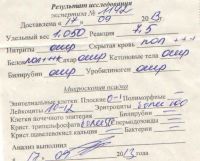 Результат исследования
экспертиза № 1192
Доставлена « 17 » 09 2013 г.
Удельный вес 1.050 Реакция 7.5
Нитриты отр Скрытая кровь пол +++
Белок Сахар отр Кетоновые тела отр
Билирубин отр Уробилиноген отр
Микроскопия осадка
Эпителиальные клетки Плоские 0-1 Полиморфные –
Лейкоциты 10-12 Эритроциты
Клетки почечного эпителия
Крист. трипельфосфаты
Билирубин Бактерии
Анализ выполнил
17. 09 2013 года